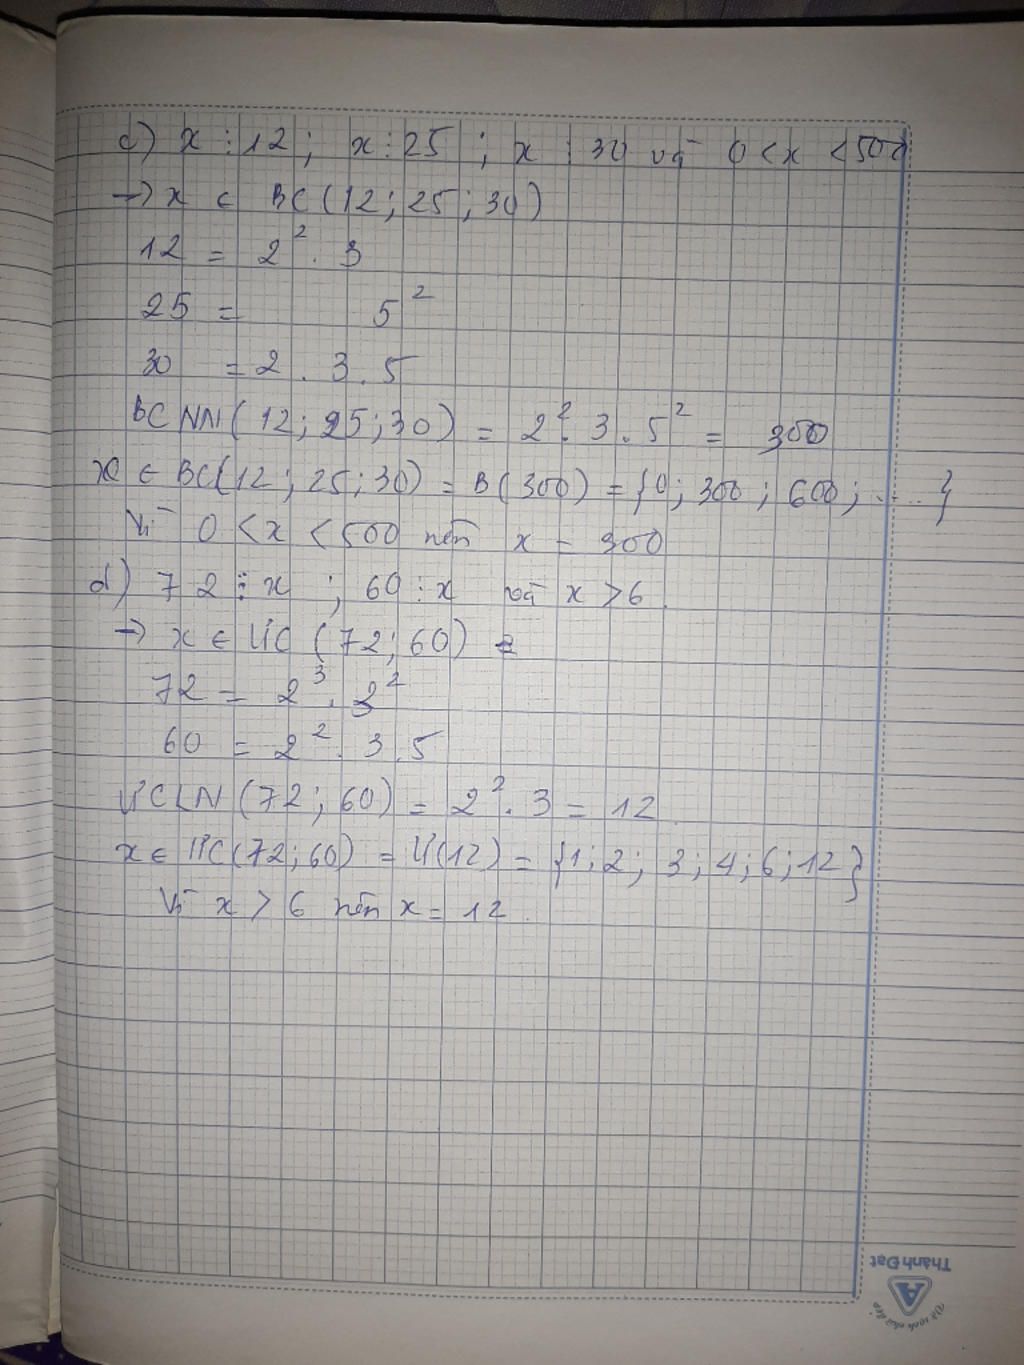 c) x ⋮ 12 ; x ⋮ 25 ; x ⋮ 30 và 0 < x < 500
→ x ∈ BC (12 ; 25 ; 30)
12 = 2² . 3
25 = 5²
30 = 2 . 3 . 5
BCNN (12 ; 25 ; 30) = 2² . 3 . 5² = 300
x ∈ BC (12 ; 25 ; 30) = B (300) = {0 ; 300 ; 600 ; ....}
Vì 0 < x < 500 nên x = 300
d) 72 ⋮ x ; 60 ⋮ x và x > 6
→ x ∈ ƯC (72 ; 60) =
72 = 2³ . 3²
60 = 2² . 3 . 5
ƯCLN (72 ; 60) = 2² . 3 = 12
x ∈ ƯC (72 ; 60) = Ư (12) = {1 ; 2 ; 3 ; 4 ; 6 ; 12}
Vì x > 6 nên x = 12 .
Thành Đạt
A